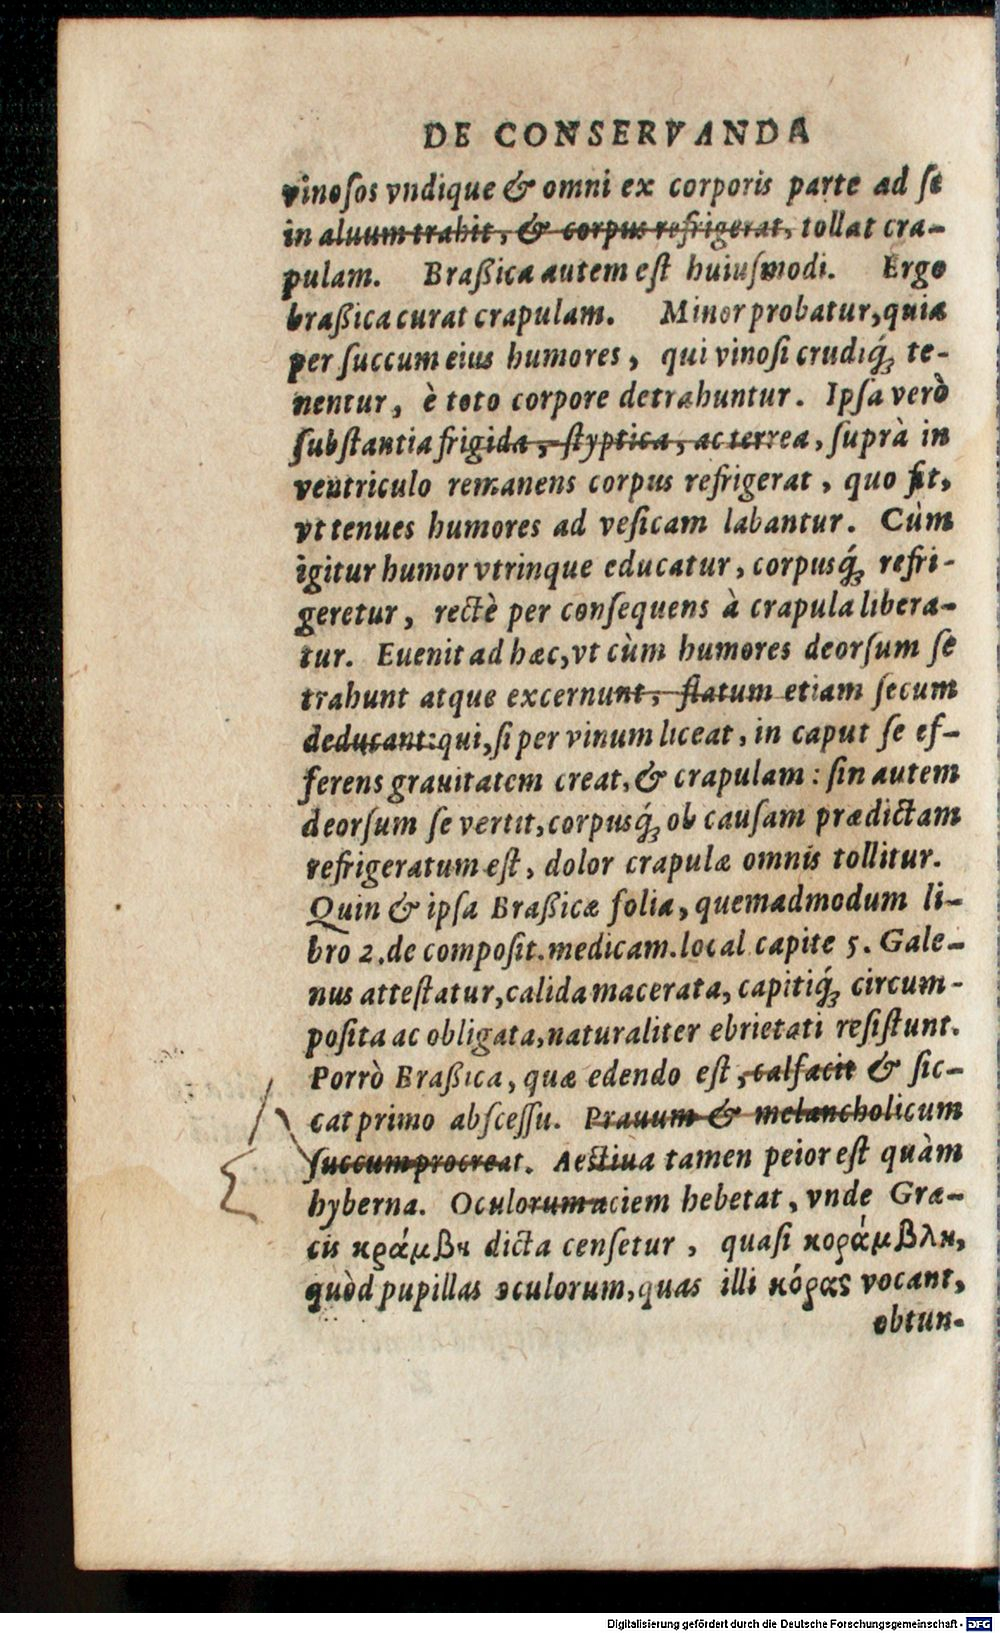 DE CONSERVANDA
vinosos vndique & omni ex corporis parte ad se
in aluum trahit, & corpus refrigerat, tollat cra-
pulam. Braßica autem est huiusmodi. Ergo
braßica curat crapulam. Minor probatur, quia
per succum eius humores, qui vinosi crudiq́ꝫ te-
nentur, è toto corpore detrahuntur. Ipsa verò
substantia frigida, styptica, ac terrea, suprà in
ventriculo remanens corpus refrigerat, quo fit,
vt tenues humores ad vesicam labantur. Cùm
igitur humor vtrinque educatur, corpusq́ꝫ refri-
geretur, rectè per consequens à crapula libera-
tur. Euenit ad hæc, vt cùm humores deorsum se
trahunt atque excernunt, flatum etiam secum
deducant: qui, si per vinum liceat, in caput se ef-
ferens grauitatem creat, & crapulam: sin autem
deorsum se vertit, corpusq́ꝫ ob causam prædictam
refrigeratum est, dolor crapulæ omnis tollitur.
Quin & ipsa Braßicæ folia, quemadmodum li-
bro 2. de composit. medicam. local capite 5. Gale-
nus attestatur, calida macerata, capitiq́ꝫ circum-
posita ac obligata, naturaliter ebrietati resistunt.
Porrò Braßica, quæ edendo est, calfacit & sic-
cat primo abscessu. Prauum & melancholicum
succum procreat. Aestiua tamen peior est quàm
hyberna. Oculorum aciem hebetat, vnde Græ-
cis κράμβη dicta censetur, quasi κοράμβλη,
quòd pupillas oculorum, quas illi κόρας vocant,
obtun-
Digitalisierung gefördert durch die Deutsche Forschungsgemeinschaft - DFG